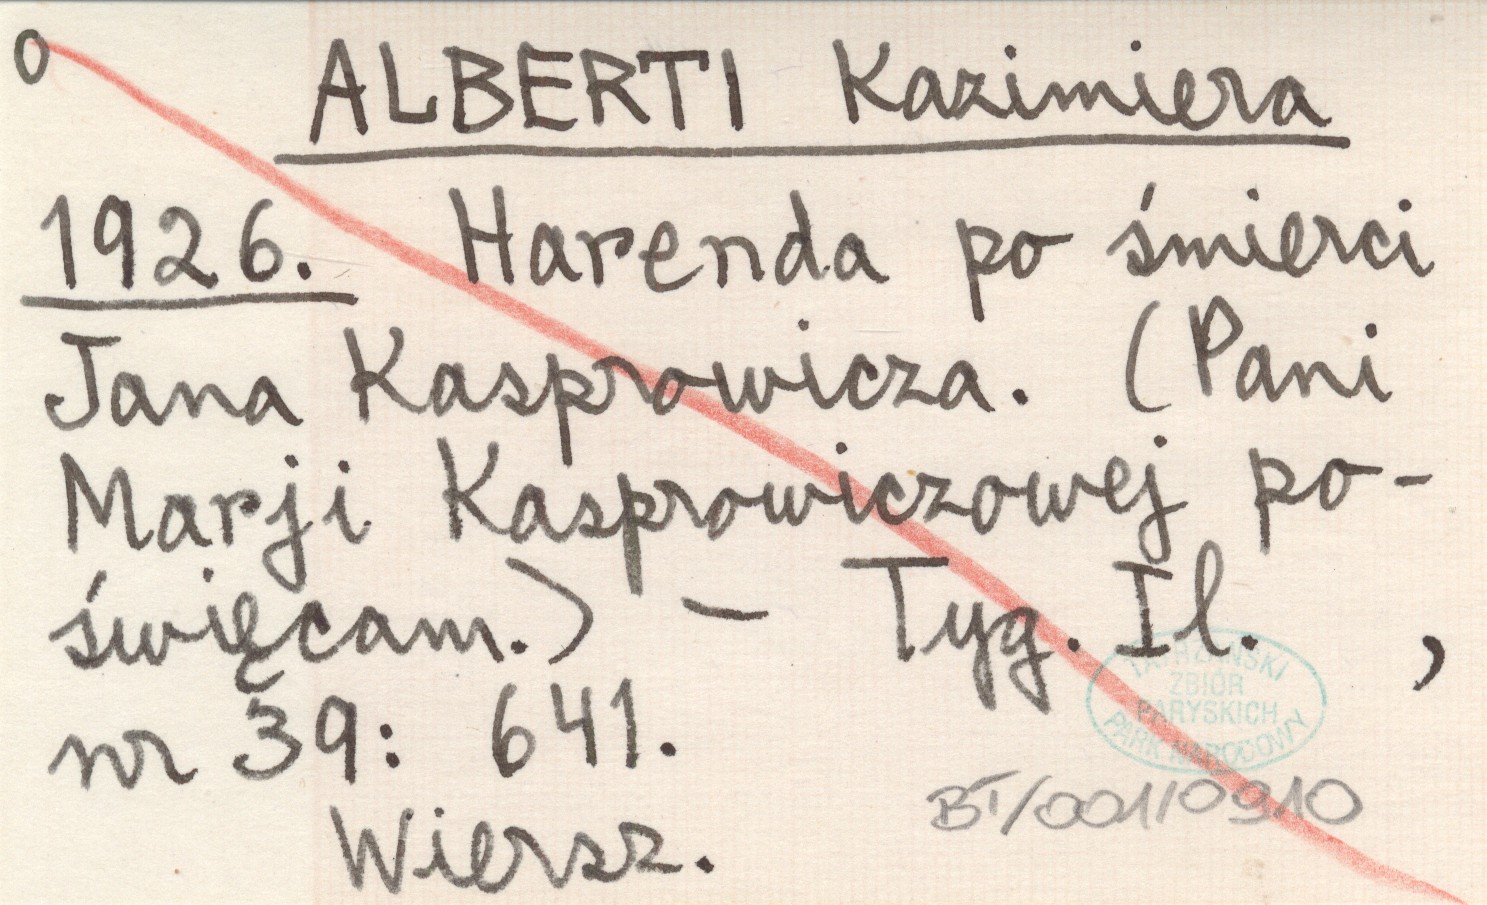 O
ALBERTI Kazimiera
1926. Harenda po śmierci
Jana Kasprowicza. (Pani
Marji Kasprowiczowej po-
święcam.) — Tyg. Il. ,
nr 39: 641.
Wiersz.
TATRZAŃSKI
ZBIÓR
PARYSKICH
PARK NARODOWY
BT/001/0910